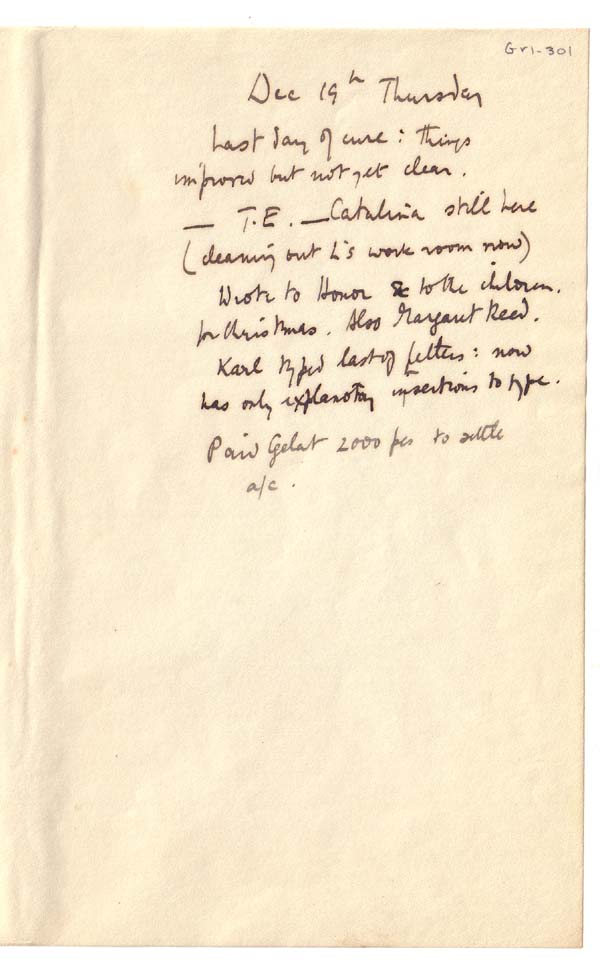 Gr1-301
Dec 19th Thursday
Last day of cure: things
improved but not yet clear.
— T.E. — Catalina still here
(cleaning out L's work room now)
Wrote to Honor & to the children.
for Christmas. Also Margaret Reed.
Karl typed last of letters: now
has only explanatory insertions to type.
Paid Gelat 2000 pes to settle
a/c.